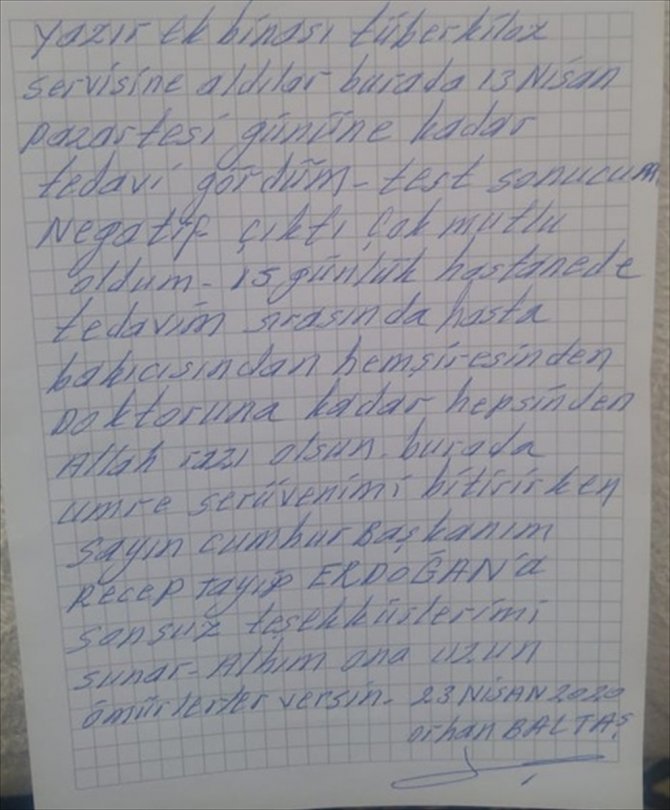 Yazır ek binası tüberkiloz
servisine aldılar burada 13 Nisan
Pazartesi gününe kadar
tedavi gördüm - test sonucum
Negatif çıktı Çok mutlu
oldum - 15 günlük hastanede
tedavim sırasında hasta
bakıcısından hemşiresinden
Doktoruna kadar hepsinden
Allah razı olsun. burada
umre serüvenimi bitirirken
Sayın cumhur Başkanım
Recep Tayip ERDOĞAN'a
Sonsuz teşekkürlerimi
sunar - Allhım ona uzun
ömürlerler versin. 23 NİSAN 2020
orhan BALTAŞ